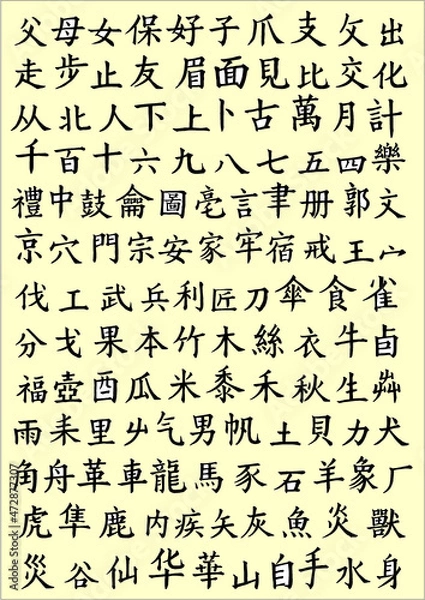 父母女保好子爪支攵出
走步止友眉面見比交化
从北人下上卜古萬月計
千百十六九八七五四樂
禮中鼓龠圖亳言聿册郭文
京穴門宗安家牢宿戒王宀
伐工武兵利匠刀傘食雀
分戈果本竹木絲衣牛卣
福壺酉瓜米黍禾秋生
雨耒里气男帆土貝力犬
角舟革車龍馬豕石羊象厂
虎隼鹿内疾矢灰魚炎獸
災谷仙华華山自手水身
Adobe Stock | #472877307